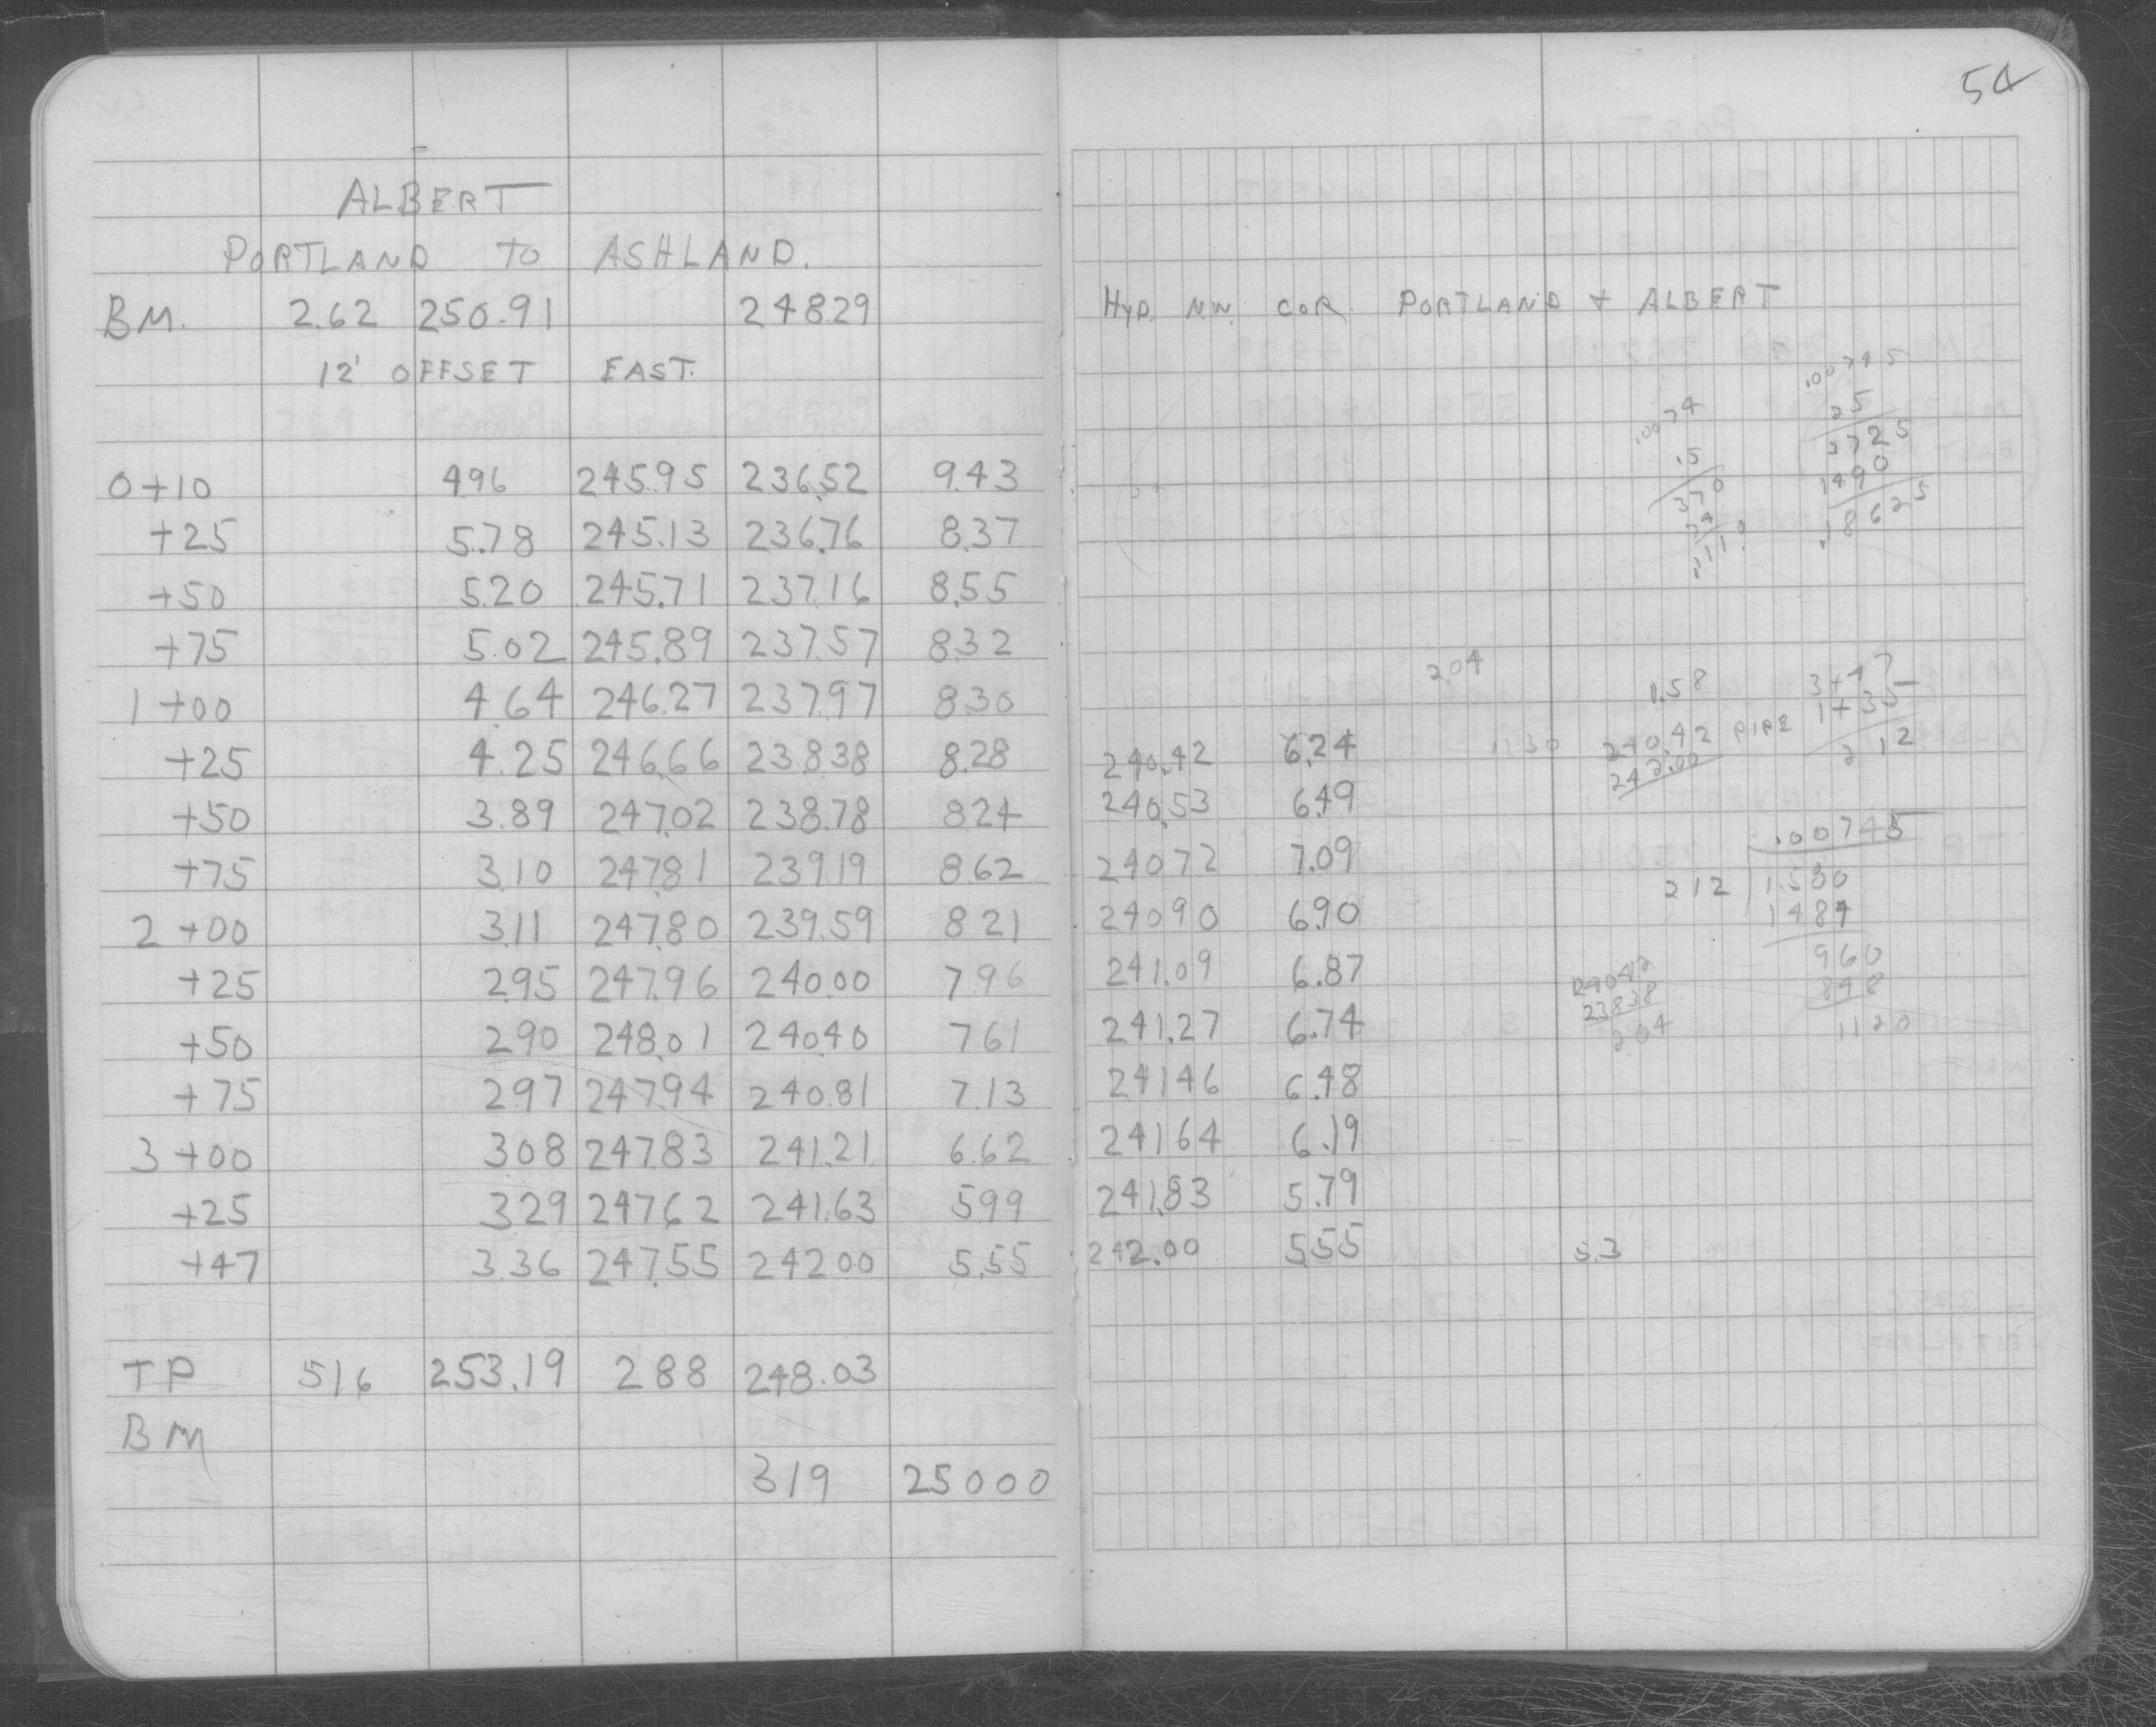 ALBERT
PORTLAND to ASHLAND.
BM. 2.62 250.91 248.29
12' OFFSET EAST.
0+10 4.96 245.95 236.52 9.43
+25 5.78 245.13 236.76 8.37
+50 5.20 245.71 237.16 8.55
+75 5.02 245.89 237.57 8.32
1+00 4.64 246.27 237.97 8.30
+25 4.25 246.66 238.38 8.28
+50 3.89 247.02 238.78 8.24
+75 3.10 247.81 239.19 8.62
2+00 3.11 247.80 239.59 8.21
+25 2.95 247.96 240.00 7.96
+50 2.90 248.01 240.40 7.61
+75 2.97 247.94 240.81 7.13
3+00 3.08 247.83 241.21 6.62
+25 3.29 247.62 241.63 5.99
+47 3.36 247.55 242.00 5.55
TP 5.16 253.19 2.88 248.03
BM
3.19 250.00
54
HYD. N.W. COR. PORTLAND + ALBERT
.0074
.5
370
.00745
25
3725
1490
.18625
2.04
240.42 6.24
240.53 6.49
240.72 7.09
240.90 6.90
241.09 6.87
241.27 6.74
241.46 6.48
241.64 6.19
241.83 5.79
242.00 5.55
1130
1.58
240.42 PIPE
242.00
3+47
1+35
2 12
.00745
212 1.580
1484
960
848
1120
240.42
238.38
2.04
5.3